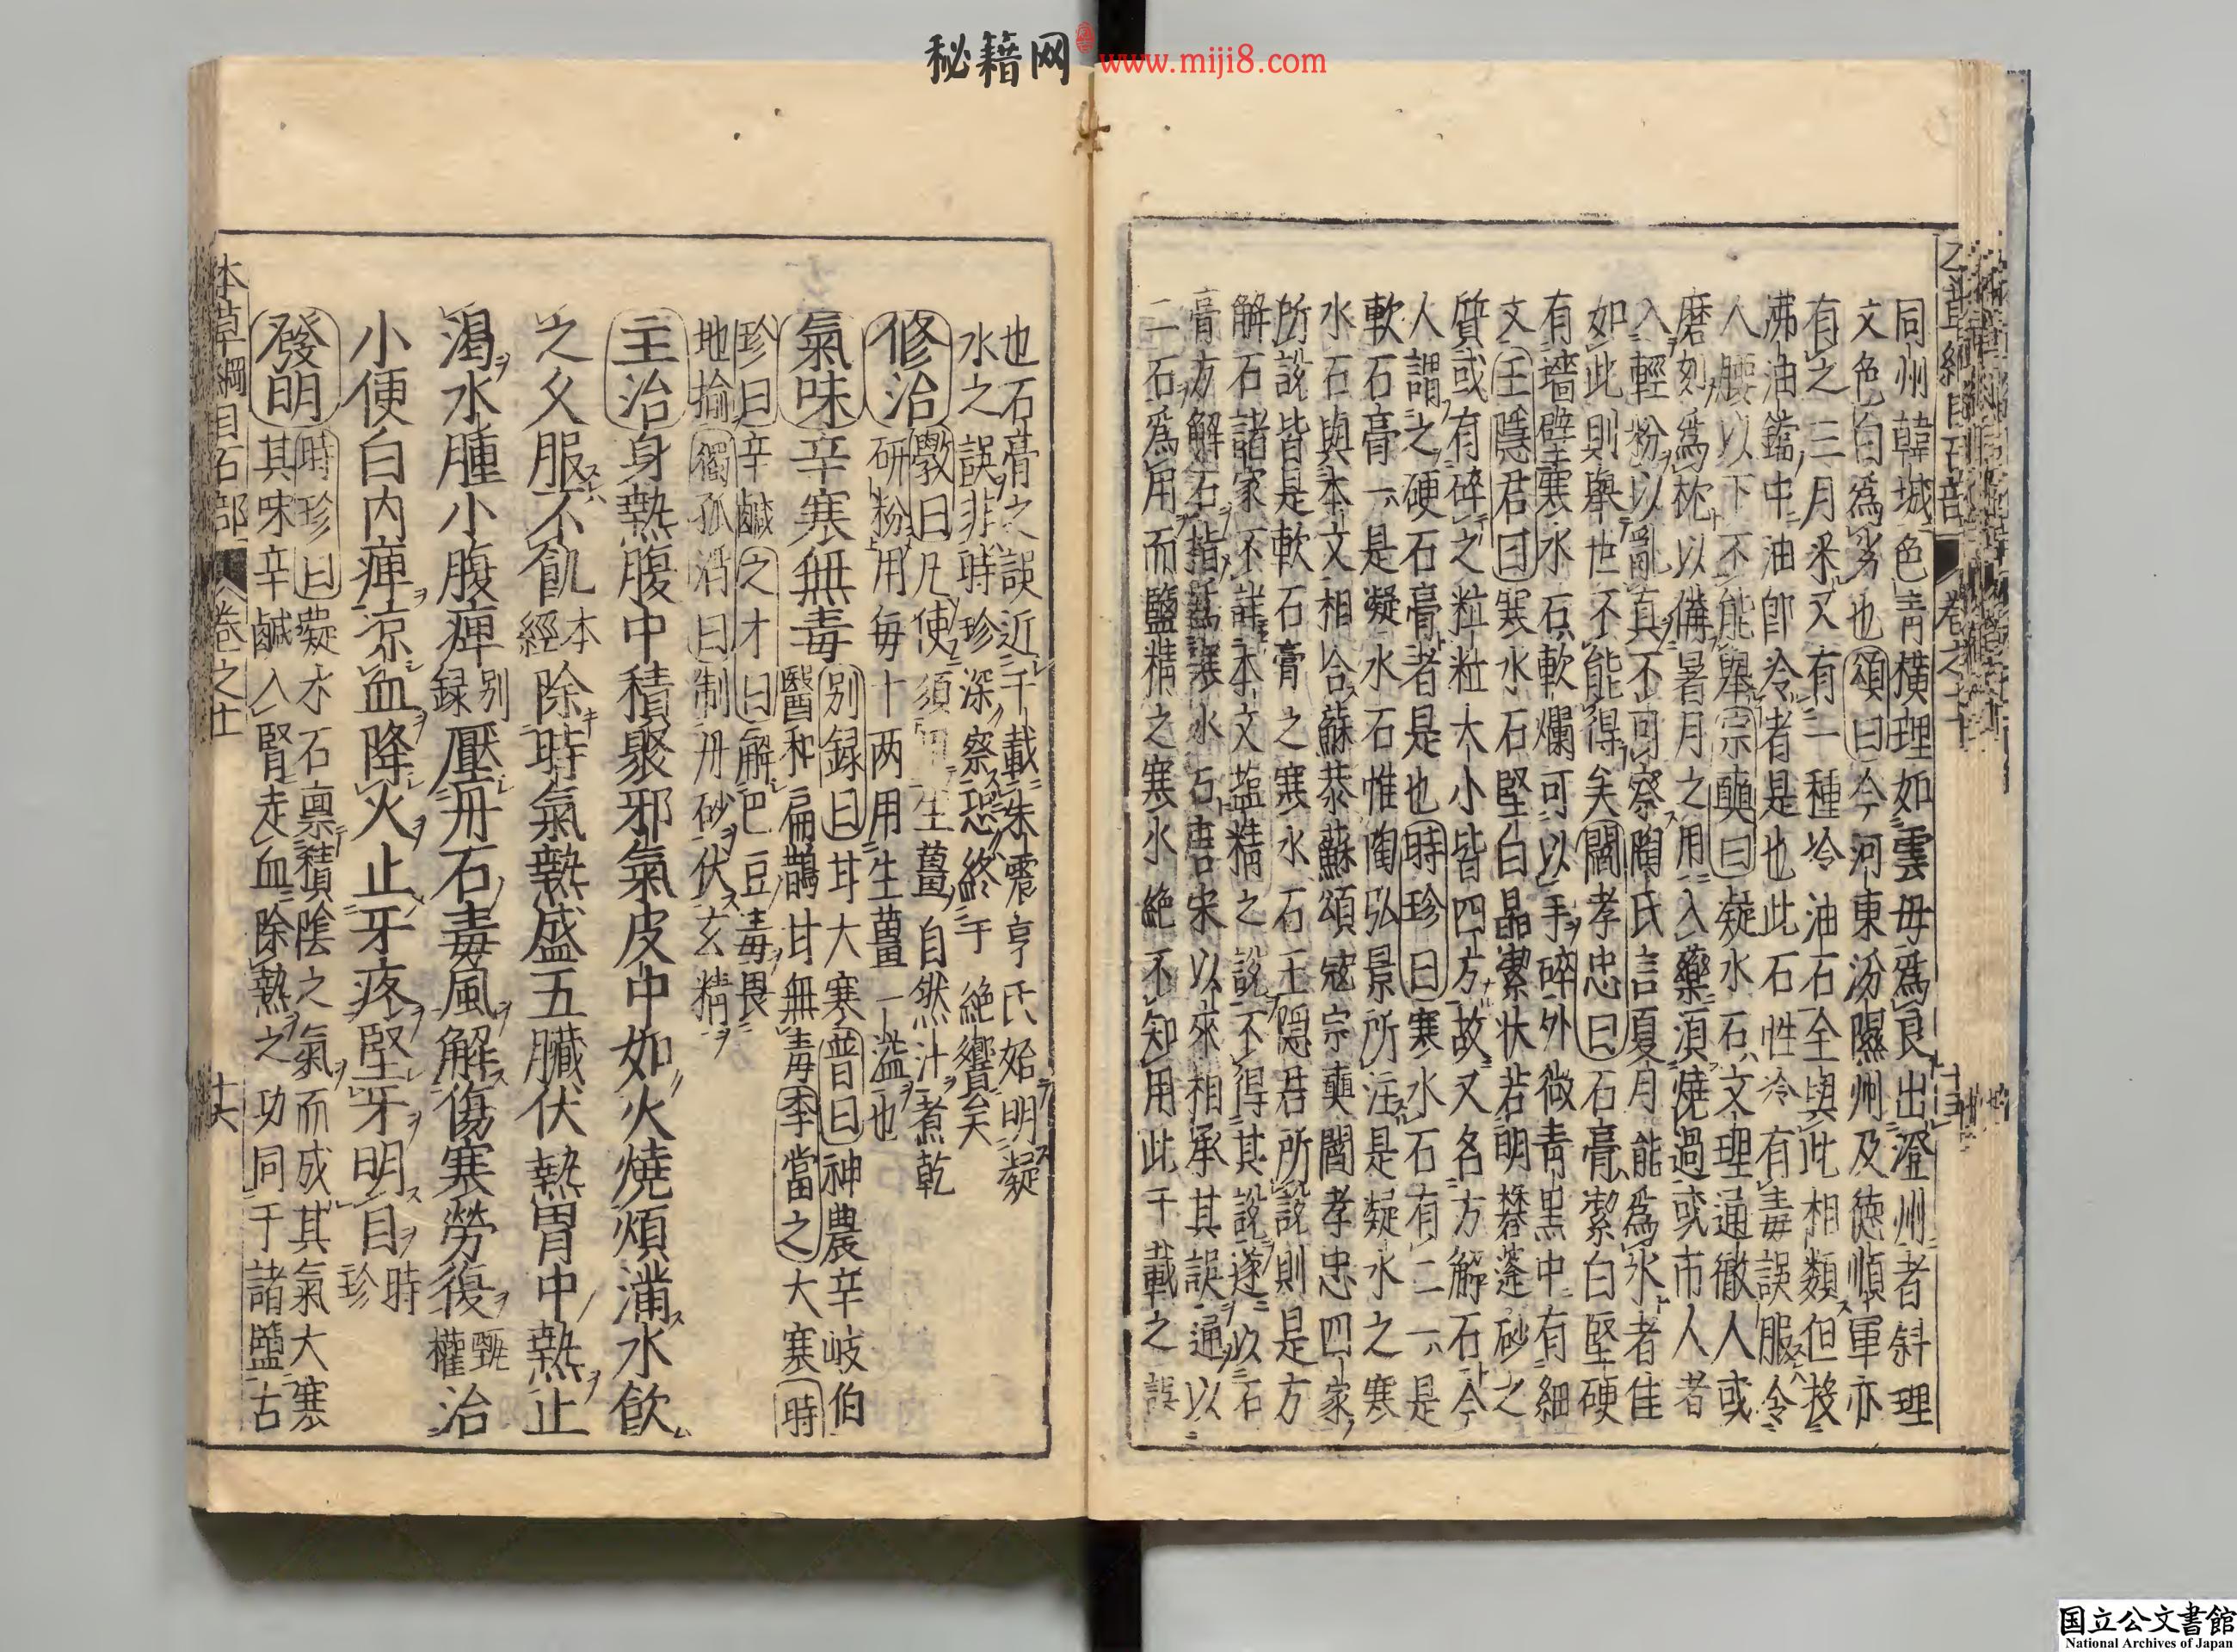 秘籍网 www.miji8.com
同州韓城色青橫理如雲母爲良出澄州者斜理
文色白爲劣也頌曰今河東汾隰州及德順軍亦
有之三月采又有一種冷油石全與此相類但投
沸油鐺中油即冷者是也此石性冷有毒誤服令
人腰以下不能舉宗奭曰凝水石文理通徹人或
磨刻爲枕以備暑月之用入藥須燒過或市人者
入輕粉以亂真不可察陶氏言夏月能爲氷者佳
如此則舉世不能得矣閻孝忠曰石膏潔白堅硬
有墻壁寒水石軟爛可以手碎外微青黒中有細
文王隱君曰寒水石堅白晶潔狀若明礬蓬砂之
質或有碎之粒粒大小皆四方故又名方解石今
人謂之硬石膏者是也時珍曰寒水石有二一是
軟石膏一是凝水石惟陶弘景所注是凝水之寒
水石與本文相合蘇恭蘇頌寇宗奭閻孝忠四家
所說皆是軟石膏之寒水石王隱君所說則是方
解石諸家不詳本文塩精之說不得其說遂以石
膏方解石指爲寒水石唐宋以來相承其誤通以
二石爲用而鹽精之寒水絶不知用此千載之誤
也石膏之誤近千載朱震亨氏始明凝
水之誤非時珍深察恐終于絶響矣
修治 斅曰凡使須用生薑自然汁煮乾
研粉用每十两用生薑一溢也
氣味辛寒無毒 别録曰甘大寒普曰神農辛岐伯
醫和扁鵲甘無毒李當之大寒時
珍曰辛鹹之才曰解巴豆毒畏
地揄獨孤滔曰制丹砂伏玄精
主治身熱腹中積聚邪氣皮中如火燒煩滿水飲
之久服不飢本經除時氣熱盛五臟伏熱胃中熱止
渴水腫小腹痺别録壓丹石毒風解傷寒勞復甄權治
小便白内痺凉血降火止牙疼堅牙明目時珍
發明 時珍曰凝水石禀積陰之氣而成其氣大寒
其味辛鹹入腎走血除熱之功同于諸鹽古
本草綱目石部 卷之十一 十六
国立公文書館
National Archives of Japan